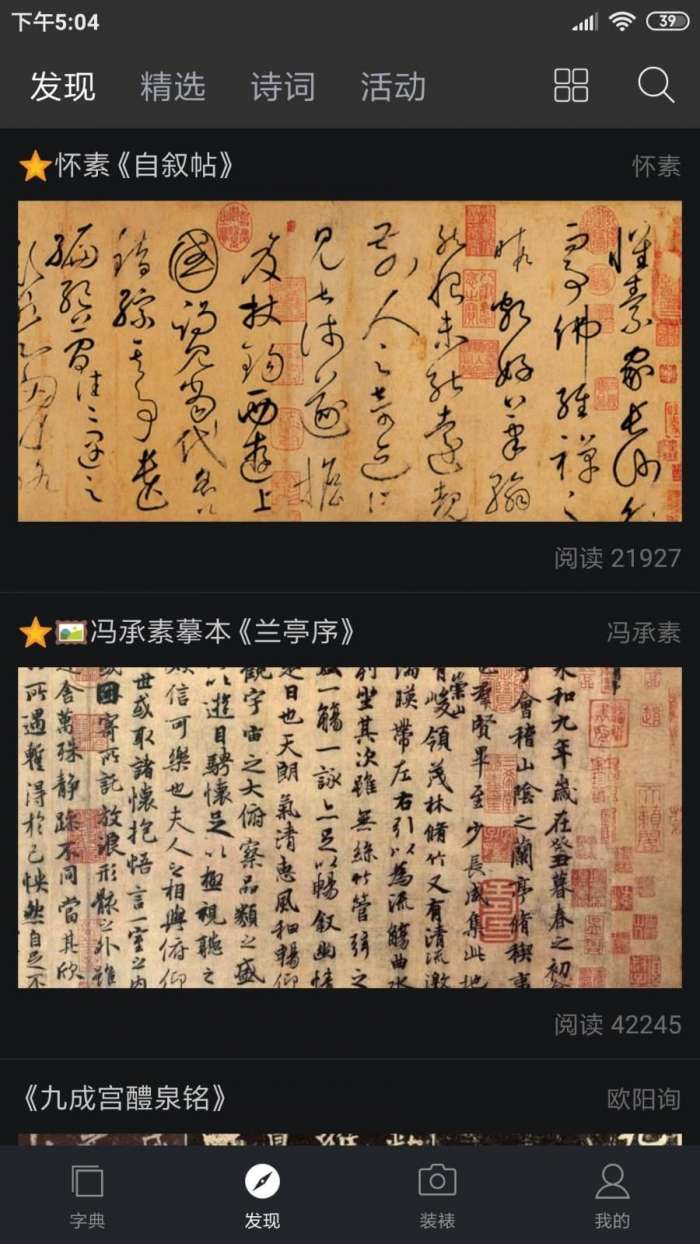 下午5:04
39
发现 精选 诗词 活动
怀素《自叙帖》
怀素
怀素家长沙
事佛经禅之
暇颇好笔翰
然恨未能远覩
前人之奇迹
见甚浅遂担
笈杖锡西遊上
國谒见当代名
阅读 21927
冯承素摹本《兰亭序》
冯承素
永和九年歲在癸丑暮春之初
于會稽山陰之蘭亭脩稧事
也羣賢畢至少長咸集此地
有崇山峻領茂林脩竹又有清流激
湍暎帶左右引以為流觴曲水
列坐其次雖無絲竹管弦之
盛一觴一詠亦足以暢叙幽情
是日也天朗氣清惠風和暢仰
觀宇宙之大俯察品類之盛
所以遊目騁懷足以極視聽之
娛信可樂也夫人之相與俯仰
一世或取諸懷抱悟言一室之內
或因寄所託放浪形骸之外雖
趣舍萬殊靜躁不同當其欣
於所遇暫得於己快然自足不
阅读 42245
《九成宫醴泉铭》
欧阳询
字典 发现 装裱 我的